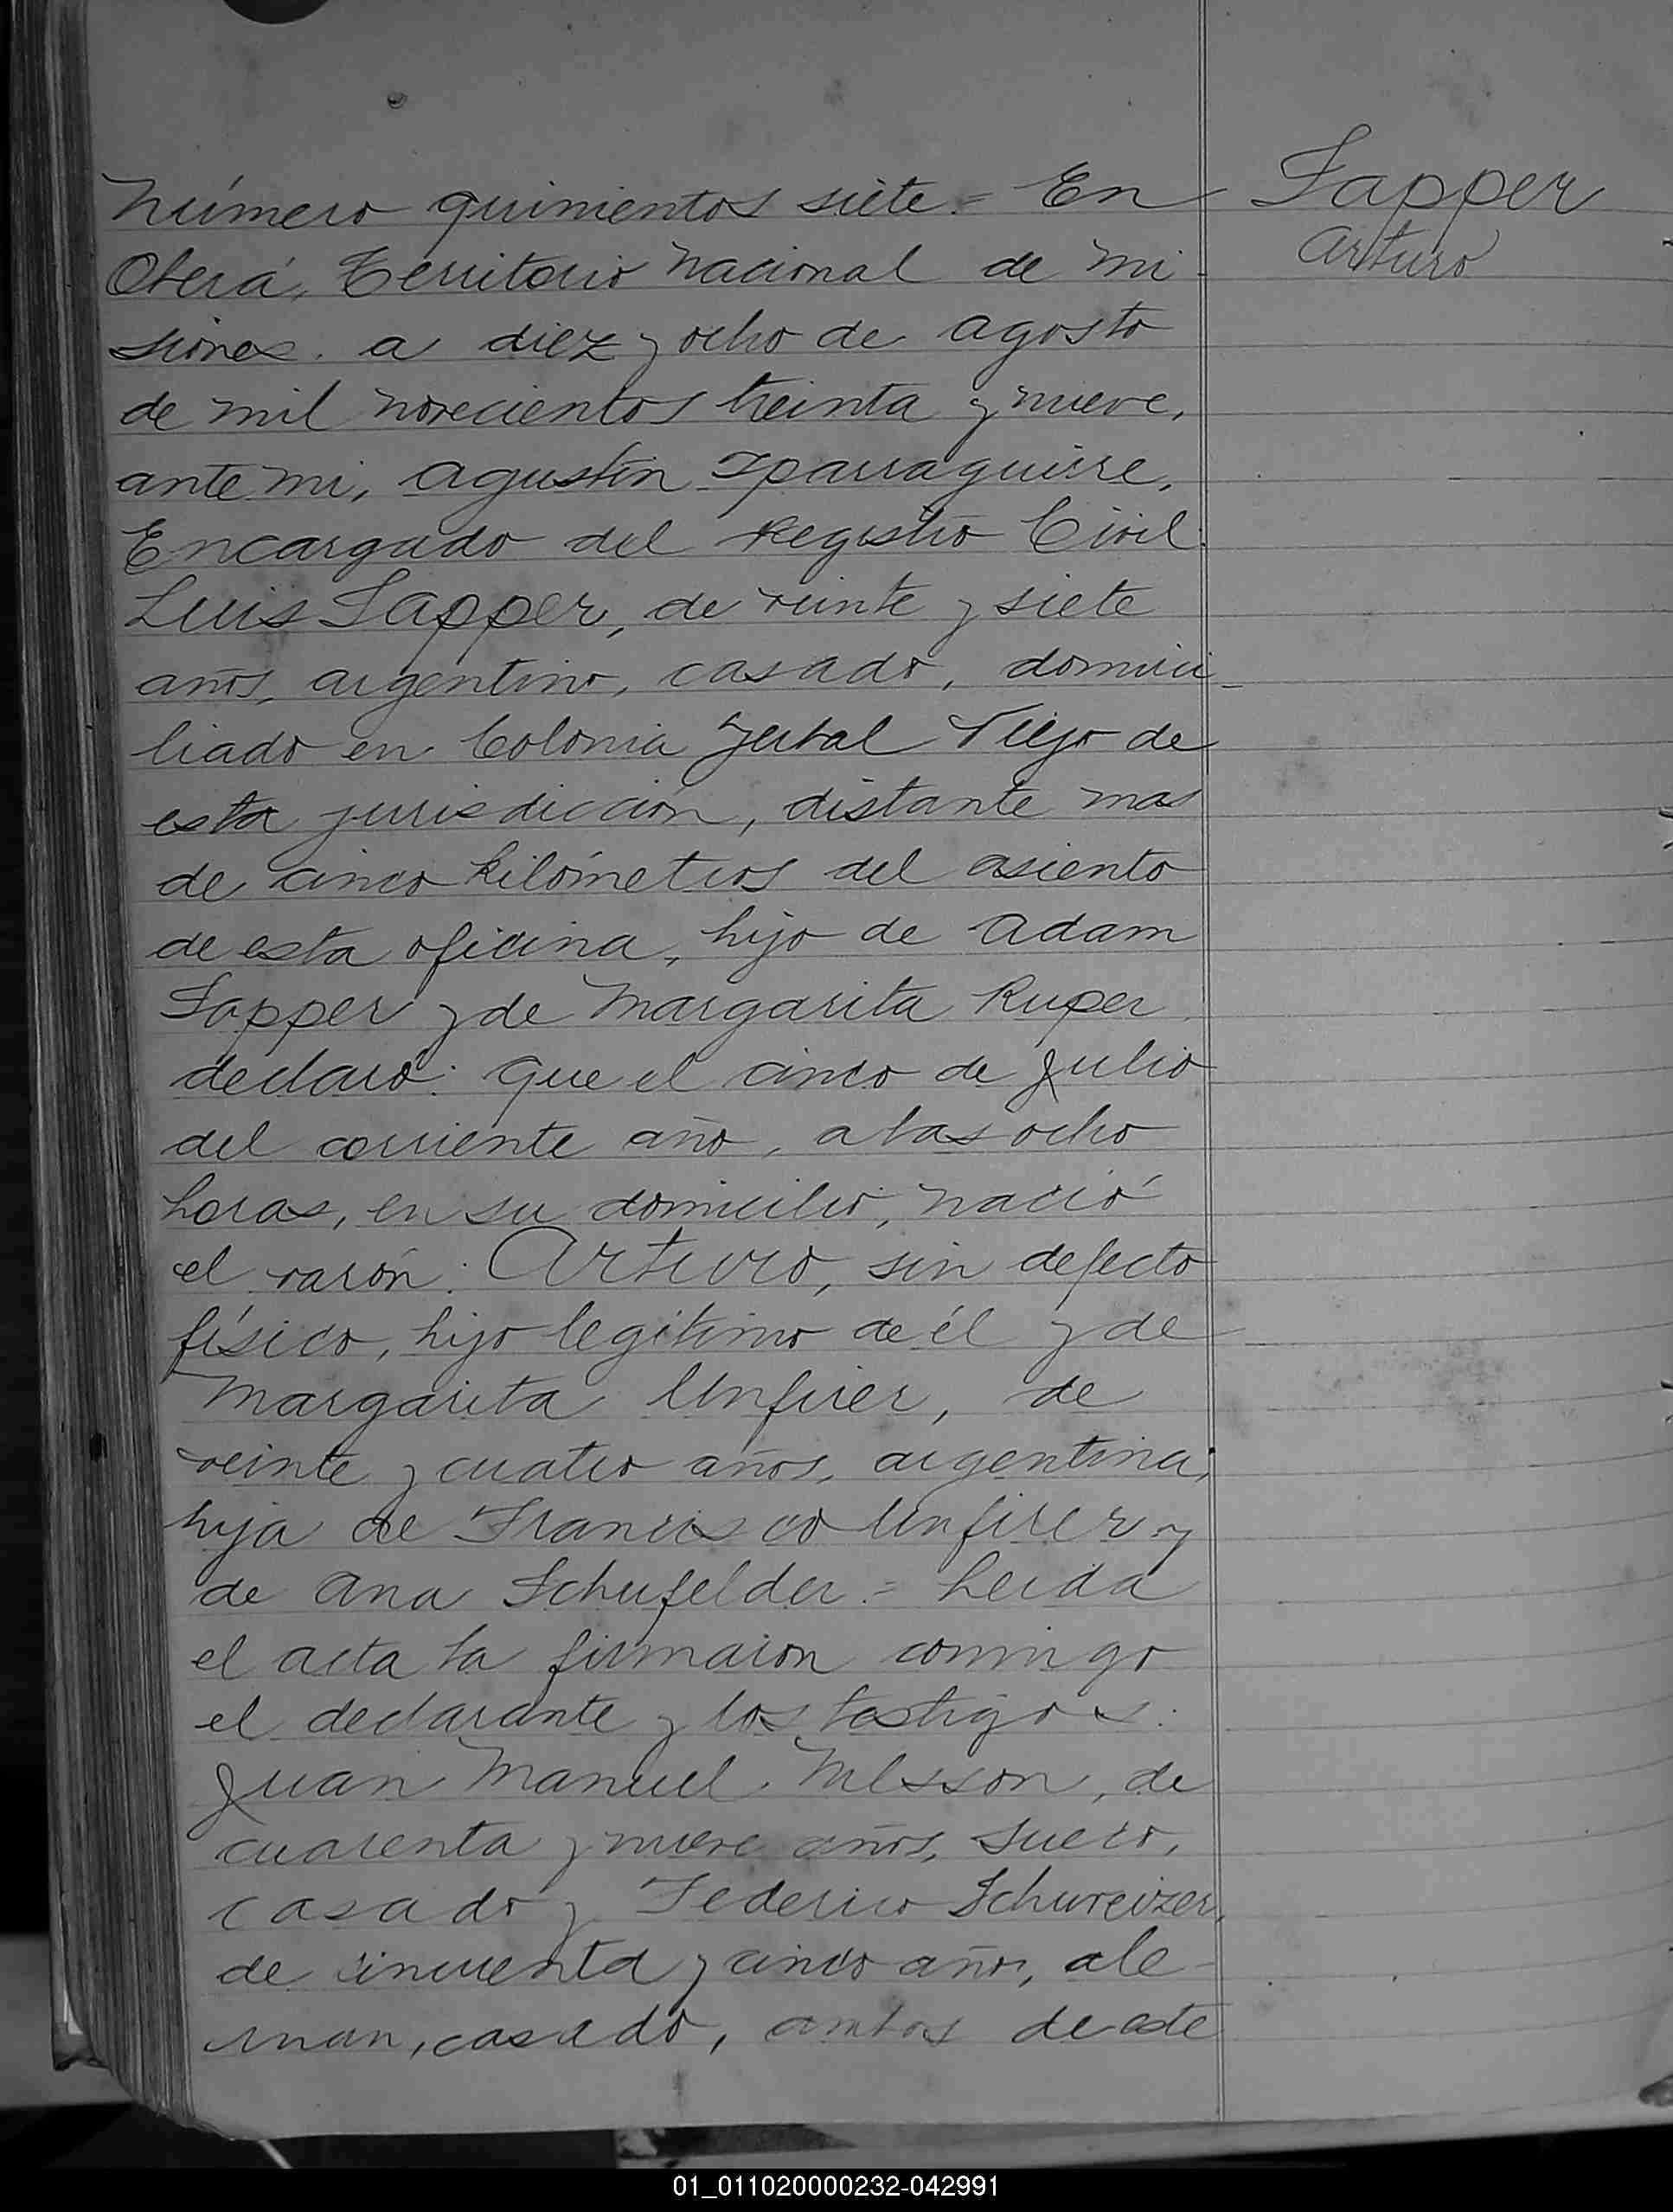 Sapper
Arturo
Número quinientos siete.= En
Oberá, Territorio Nacional de Mi-
siones. a diez y ocho de Agosto
de mil novecientos treinta y nueve,
ante mi, Agustín Iparraguirre,
Encargado del Registro Civil:
Luis Sapper, de veinte y siete
años, argentino, casado, domici-
liado en Colonia Yerbal Viejo de
esta jurisdicción, distante mas
de cinco kilómetros del asiento
de esta oficina, hijo de Adam
Sapper y de Margarita Ruper
declaró: que el cinco de Julio
del corriente año, a las ocho
horas, en su domicilio, nació
el varón: Arturo, sin defecto
físico, hijo legítimo de él y de
Margarita Unfirer, de
veinte y cuatro años, argentina,
hija de Francisco Unfirer y
de Ana Schufelder.= Leida
el acta la firmaron conmigo
el declarante y los testigos:
Juan Manuel de
cuarenta y nueve años, sueco,
casado y Federico Schweizer,
de cincuenta y cinco años, ale-
man, casado, ambos de este
01_011020000232-042991